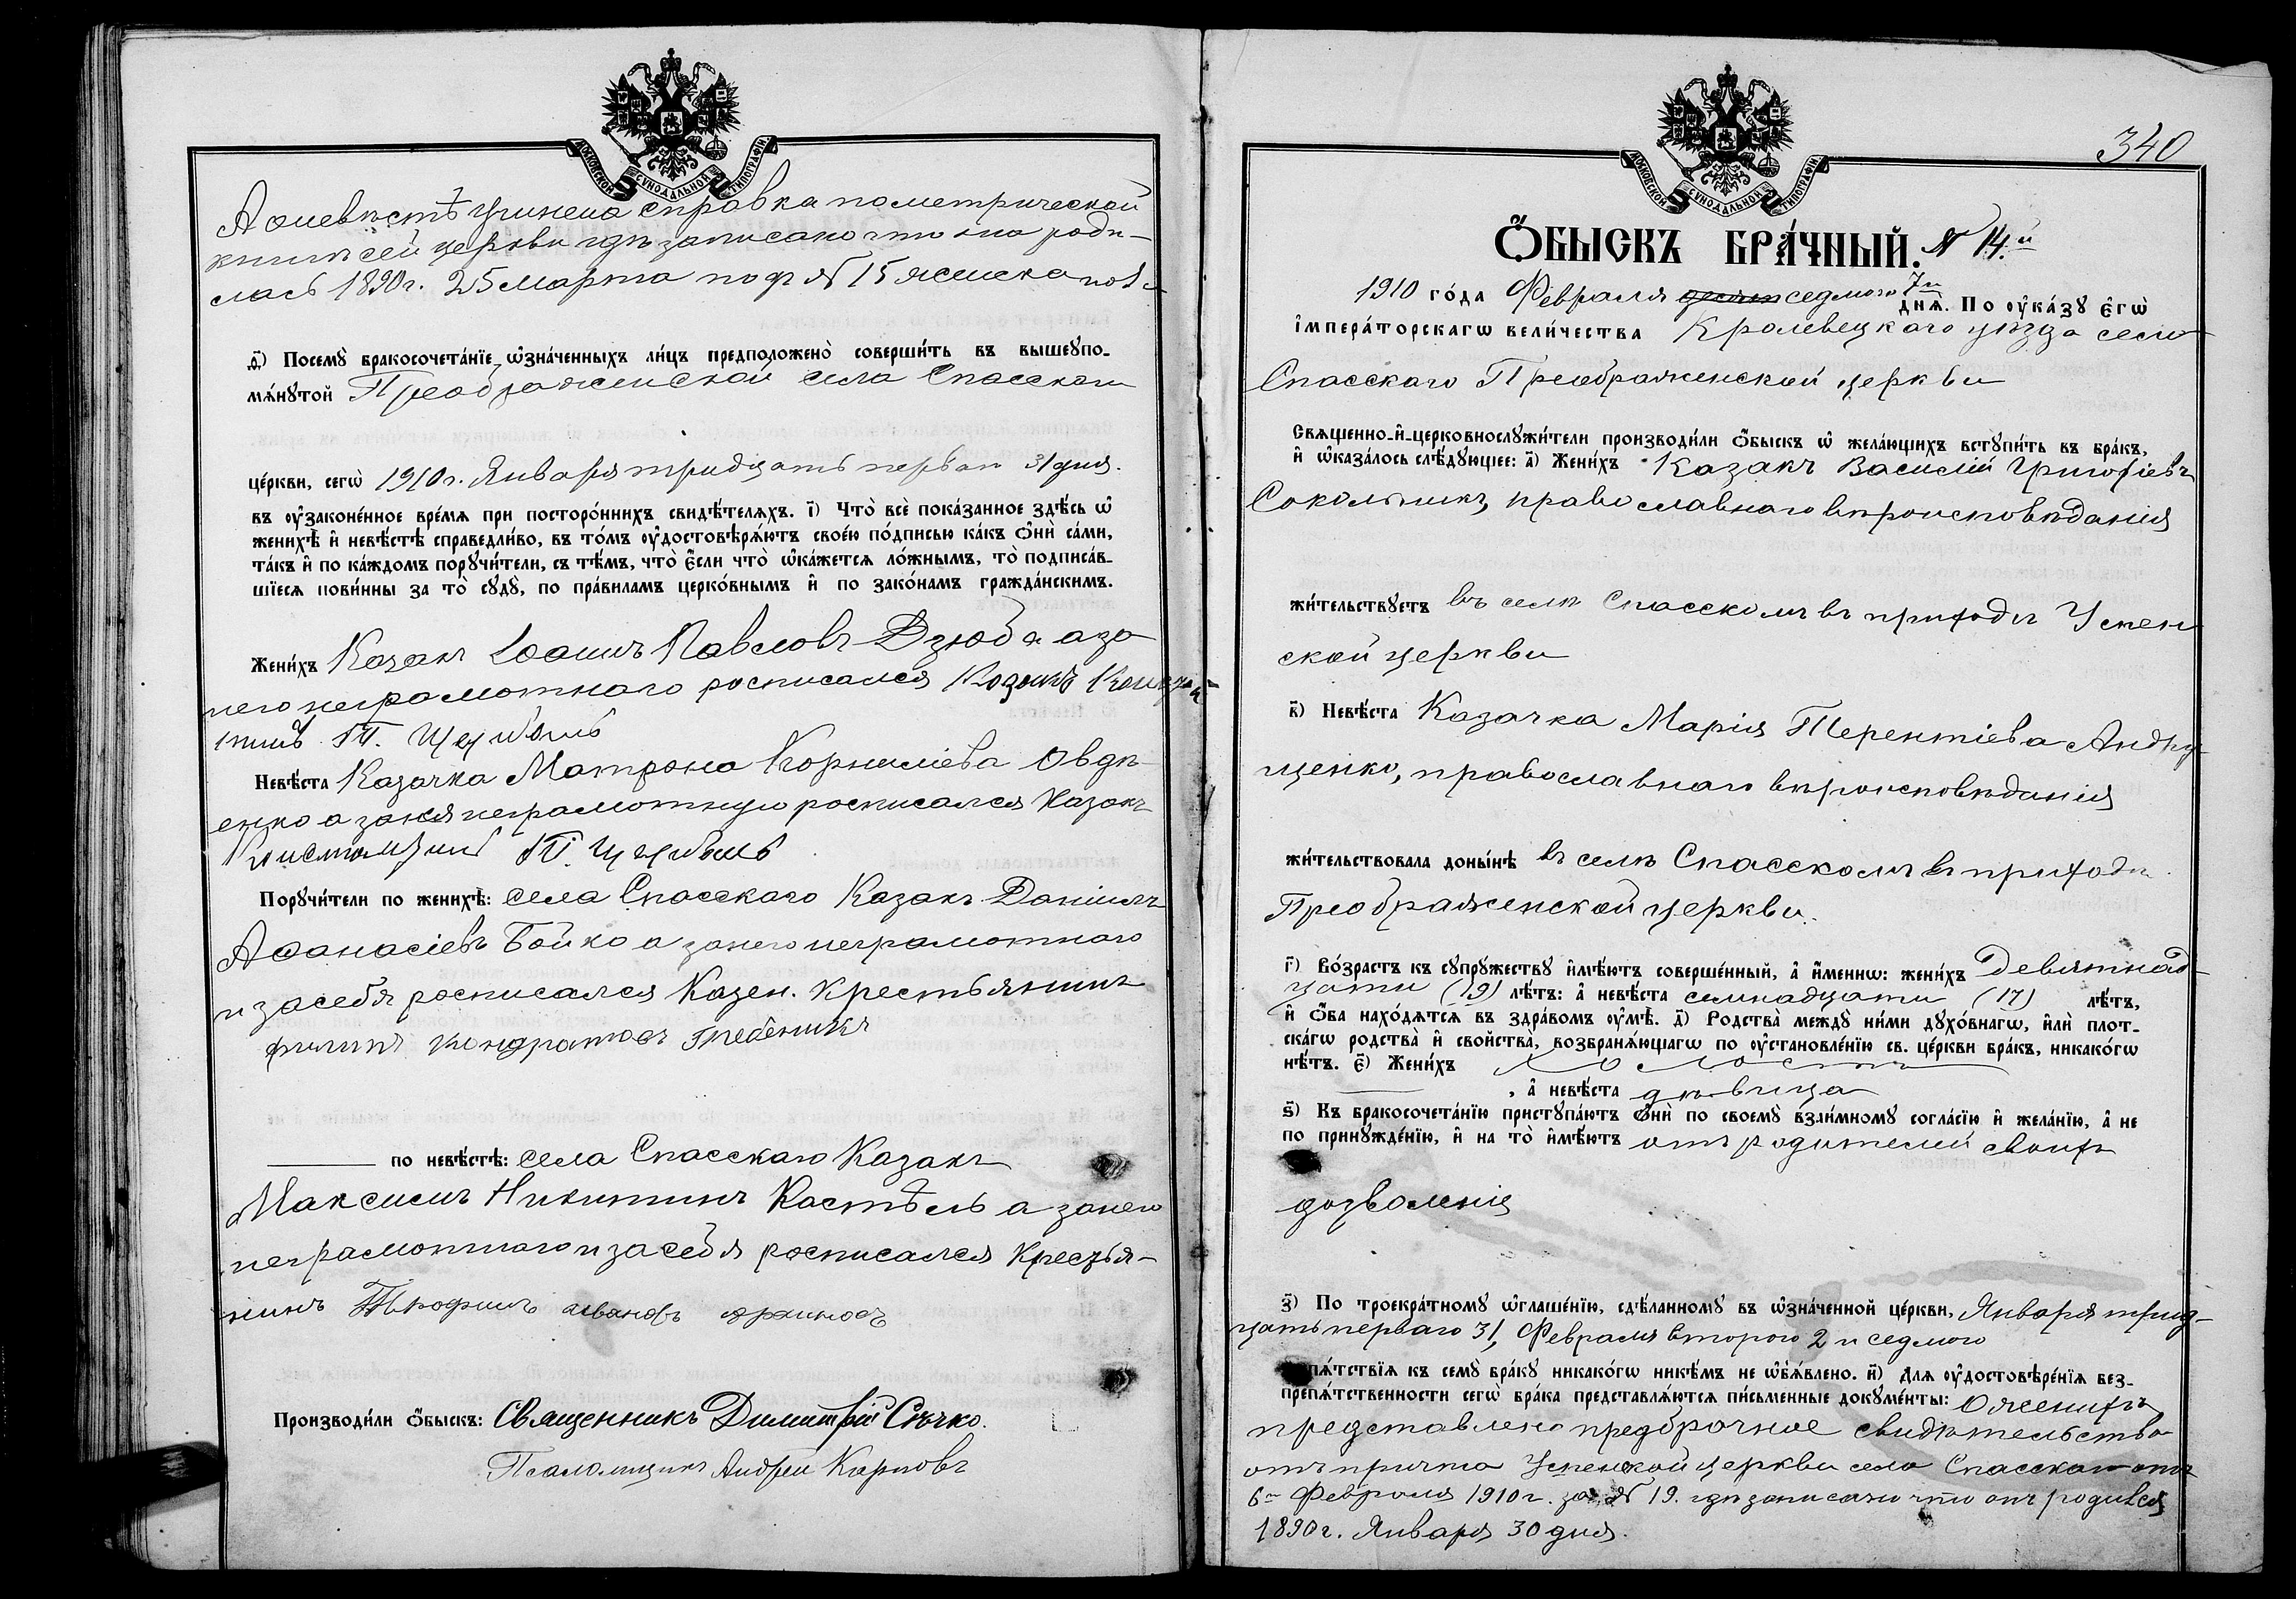 МОСКОВСКОЙ СѴНОДАЛЬНОЙ ТИПОГРАФІИ.
А о невѣстѣ учинена справка по метрической
книгѣ сей церкви гдѣ записано что она роди-
лась 1890 г. 25 марта под № 15 женска пола
ѳ҃) Посемꙋ̀ бракосочета́нїе ѡ҆зна́ченныхъ ли́цъ предположенò соверши́ть въ вышеꙋпо-
мѧ́нꙋтой Преображенской села Спасскаго
це́ркви, сегѡ̀ 1910 г. Января тридцать перваго 31 дня.
въ ᲂу҆законе́нное вре́мѧ при посторо́ннихъ свидѣ́телѧхъ. і҃) Чтò всè пока́занное здѣ́сь ѡ҆
женихѣ̀ и҆ невѣ́стѣ справедли́во, въ то́мъ ᲂу҆достовѣрѧ́ютъ свое́ю по́дписью ка́къ ѻ҆нѝ са́ми,
та́къ и҆ по ка́ждомъ порꙋчи́тели, съ тѣ́мъ, чтò є҆́сли чтò ѡ҆ка́жетсѧ ло́жнымъ, тò подписа́в-
шїесѧ пови́нны за тò сꙋдꙋ̀, по пра́виламъ церко́внымъ и҆ по зако́намъ гражда́нскимъ.
Жени́хъ Казакъ Іоаннъ Павловъ Дзюба а за
него неграмотнаго росписался Козакъ
П.
Невѣ́ста Казачка Матрона Корниліева Овдѣ-
енко а за нея неграмотную росписался Казакъ
П.
Порꙋчи́тели по женихѣ̀: села Спасскаго Казакъ Даніилъ
Аѳанасіевъ Бойко а за него неграмотнаго
и за себя росписался Казен. Крестьянинъ
филипъ Кондратовъ Гребеникъ
по невѣ́стѣ: села Спасскаго Казакъ
Максимъ Никитинъ Костѣль а за него
неграмотнаго и за себя росписался Крестья-
нинъ Трофимъ ивановъ
Производи́ли ѻ҆́быскъ: Священникъ Димитрій Сѣчко.
Псаломщикъ Андрей Карповъ
340
МОСКОВСКОЙ СѴНОДАЛЬНОЙ ТИПОГРАФІИ.
Ѻ҆́БЫСКЪ БРА́ЧНЫЙ. № 14.й
1910 го́да Февраля седмого 7го днѧ̀. По ᲂу҆ка́зꙋ є҆гѡ̀
і҆мпера́торскагѡ вели́чества Кролевецкаго уѣзда села
Спасскаго Преображенской церкви
Свѧщенно-и҆-церковнослꙋжи́тели производи́ли ѻ҆́быскъ ѡ҆ жела́ющихъ встꙋпи́ть въ бра́къ,
и҆ ѡ҆каза́лось слѣ́дꙋющее: а҃) Жени́хъ Казакъ Василій Григоріевъ
Сокольникъ, православнаго вѣроисповѣданія
жи́тельствꙋетъ въ селѣ Спасскомъ въ приходѣ Успен
ской церкви
в҃) Невѣ́ста Казачка Марія Терентіева Андру-
щенко, православнаго вѣроисповѣданія
жи́тельствовала доны́нѣ въ селѣ Спасскомъ въ приходѣ
Преображенской церкви.
г҃) Во́зрастъ къ сꙋпрꙋ́жествꙋ и҆мѣ́ютъ соверше́нный, а҆̀ и҆́меннѡ: жени́хъ Девятнад-
цати (19) лѣ́тъ: а҆̀ невѣ́ста семнадцати (17) лѣ́тъ,
и҆ ѻ҆́ба нахо́дѧтсѧ въ здра́вомъ ᲂу҆мѣ̀. д҃) Родства̀ междꙋ̀ ни́ми дꙋхо́внагѡ, и҆лѝ плот-
ска́гѡ родства̀ и҆ сво́йства̀, возбранѧ́ющагѡ по ᲂу҆становле́нїю св. це́ркви бра́къ, никако́гѡ
нѣ́тъ. є҃) Жени́хъ Холостъ
, а҆̀ невѣ́ста дѣвица
ѕ҃) Къ бракосочета́нїю пристꙋпа́ютъ ѻ҆нѝ по своемꙋ̀ взаи́мномꙋ согла́сїю и҆ жела́нїю, а҆̀ не
по принꙋжде́нїю, и҆ на тò и҆мѣ́ютъ отъ родителей своихъ
дозволенія
з҃) По троекра́тномꙋ ѡ҆глаше́нїю, сдѣ́ланномꙋ въ ѡ҆зна́ченной це́ркви, Января трид-
цать перваго 31, Февраля второго 2 и седмого
пѧ́тствїѧ къ семꙋ̀ бра́кꙋ никако́гѡ никѣ́мъ не ѡ҆б̾ѧ́влено. и҃) Длѧ ᲂу҆достовѣре́нїѧ без-
препѧ́тственности сегѡ̀ бра́ка представлѧ́ютсѧ пи́сьменные докꙋме́нты: О женихѣ
представлено предбрачное свидѣтельство
отъ причта Успенской церкви села Спасскаго отъ
6го Февраля 1910 г. за № 19. гдѣ записано что онъ родился
1890 г. Января 30 дня.